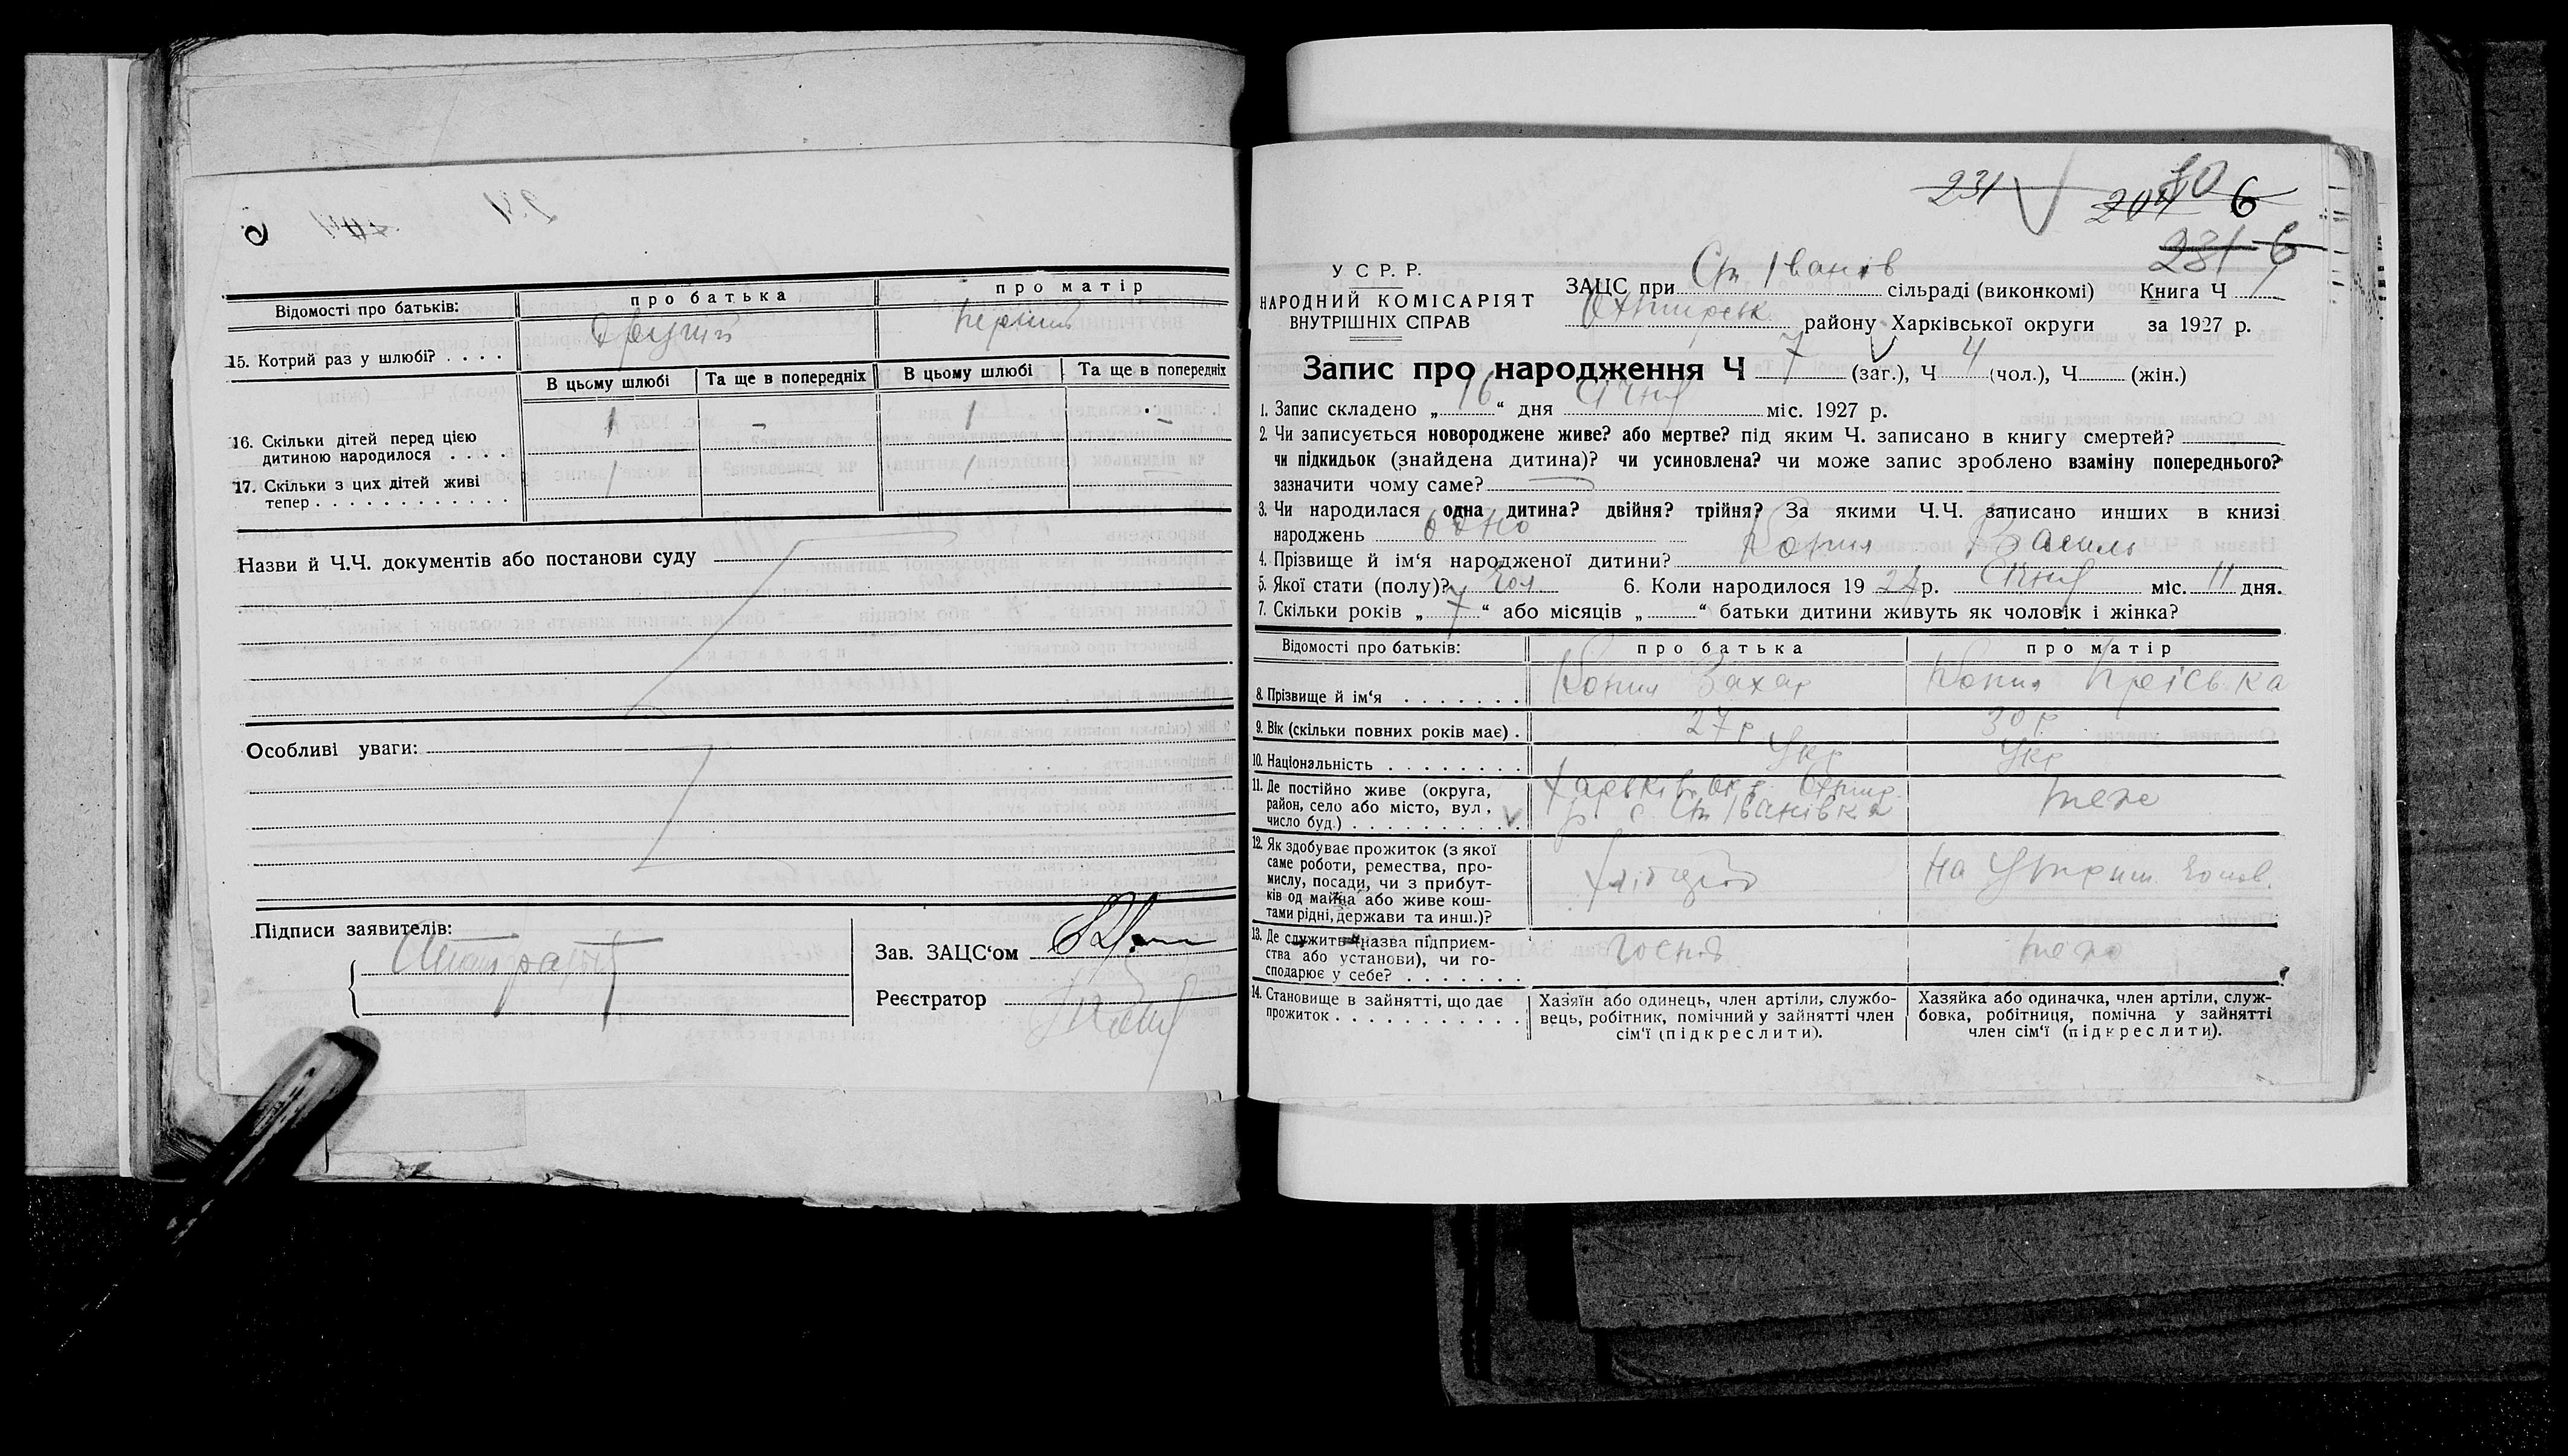 Відомості про батьків: про батька про матір
15. Котрий раз у шлюбі? . . . . Другий Перший
В цьому шлюбі Та ще в попередніх В цьому шлюбі Та ще в попередніх
16. Скільки дітей перед цією
дитиною народилося . . . . 1 - 1 -
17. Скільки з цих дітей живі
тепер . . . . . . . . . . . . 1 1
Назви й Ч.Ч. документів або постанови суду
Особливі уваги:
Підписи заявителів:
Зав. ЗАЦС‘ом
Реєстратор
231 204 10 6
231 6
У С Р. Р.
НАРОДНИЙ КОМІСАРІЯТ
ВНУТРІШНІХ СПРАВ
ЗАЦС при Ст Іванів сільраді (виконкомі) Книга Ч
Охтирськ району Харківської округи за 1927 р.
Запис про народження Ч 7 (заг.), Ч 4 (чол.), Ч (жін.)
1. Запис складено „ 16 “ дня Січня міс. 1927 р.
2. Чи записується новороджене живе? або мертве? під яким Ч. записано в книгу смертей?
чи підкидьок (знайдена дитина)? чи усиновлена? чи може запис зроблено взаміну попереднього?
зазначити чому саме?
3. Чи народилася одна дитина? двійня? трійня? За якими Ч.Ч. записано инших в книзі
народжень одно
4. Прізвище й ім‘я народженої дитини? Василь
5. Якої стати (полу)? Чол 6. Коли народилося 19 27 р. Січня міс. 11 дня.
7. Скільки років „ 7 “ або місяців „ “ батьки дитини живуть як чоловік і жінка?
Відомості про батьків: про батька про матір
8. Прізвище й ім‘я . . . . . . . Захар Пріська
9. Вік (скільки повних років має) . 27 р 30 р
10. Національність . . . . . . . . Укр Укр
11. Де постійно живе (округа, Харьків. окр. Охтир.
район, село або місто, вул., р. с. Ст Іванівка теж
число буд.) . . . . . . . . . . .
12. Як здобуває прожиток (з якої
саме роботи, ремества, про-
мислу, посади, чи з прибут-
ків од майна або живе кош-
тами рідні, держави та инш.)? Хлібороб На Утрим. Чолов.
13. Де служить (назва підприєм-
ства або установи), чи го-
сподарює у себе? . . . . . . .
14. Становище в зайнятті, що дає
прожиток . . . . . . . . . . .
Хазяїн або одинець, член артіли, службо-
вець, робітник, помічний у зайнятті член
сім‘ї (підкреслити).
Хазяйка або одиначка, член артіли, служ-
бовка, робітниця, помічна у зайнятті
член сім‘ї (підкреслити).